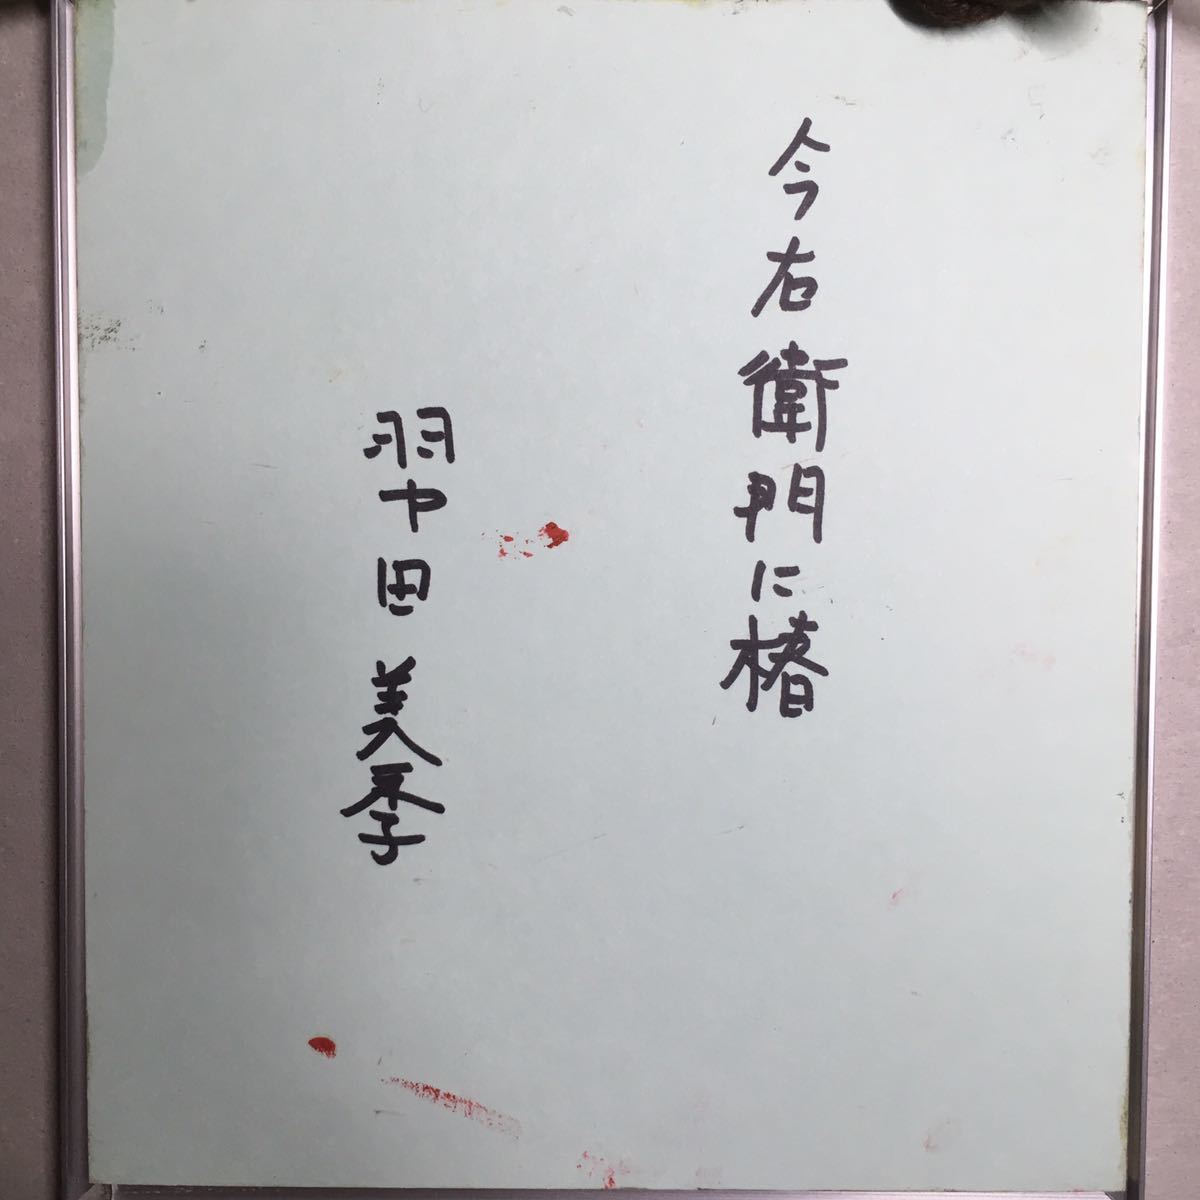 今右衛門に椿
羽中田美季